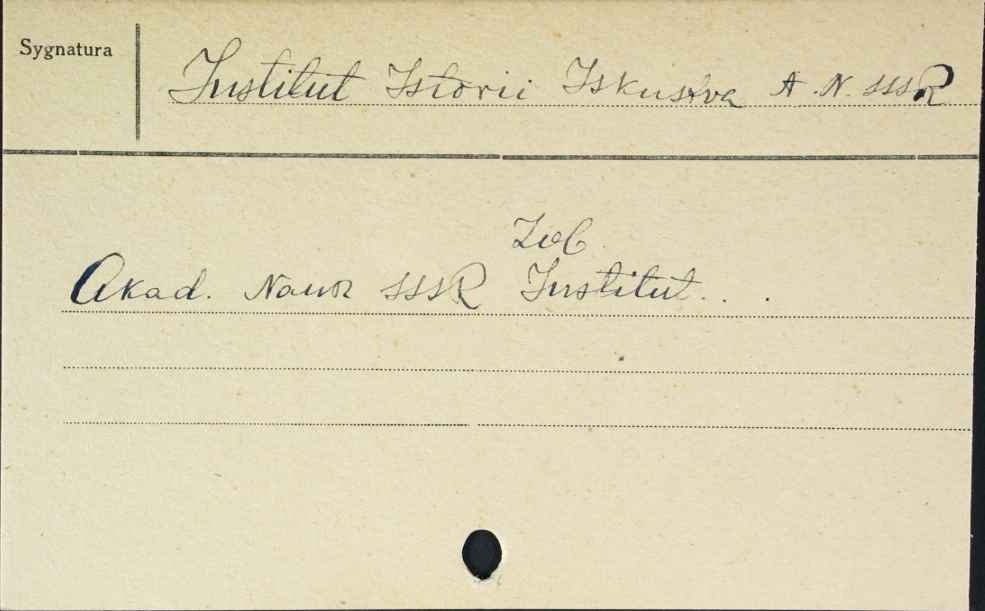 Sygnatura
Institut Istorii Iskustva A.N. SSSR
Zob.
Akad. Nauk SSSR Institut...